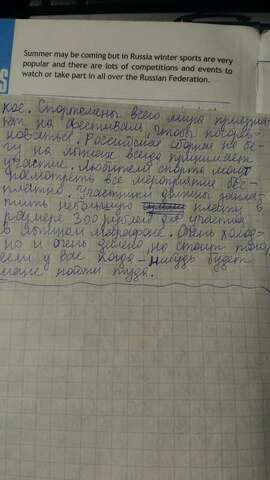 Summer may be coming but in Russia winter sports are very
popular and there are lots of competitions and events to
watch or take part in all over the Russian Federation.
кое. Спортсмены всего мира приезжа
ют на фестиваль, чтобы посорев-
новаться. Российская сборная по бе-
гу на лыжах всегда принимает
участие. Любители спорта могут
посмотреть все мероприятия бес-
платно. Участники должны запла-
тить небольшую плату в
размере 300 рублей участия
в лыжном марафоне. Очень холод-
но и очень далеко, но стоит того,
если у вас когда-нибудь будет
шанс пойти туда.